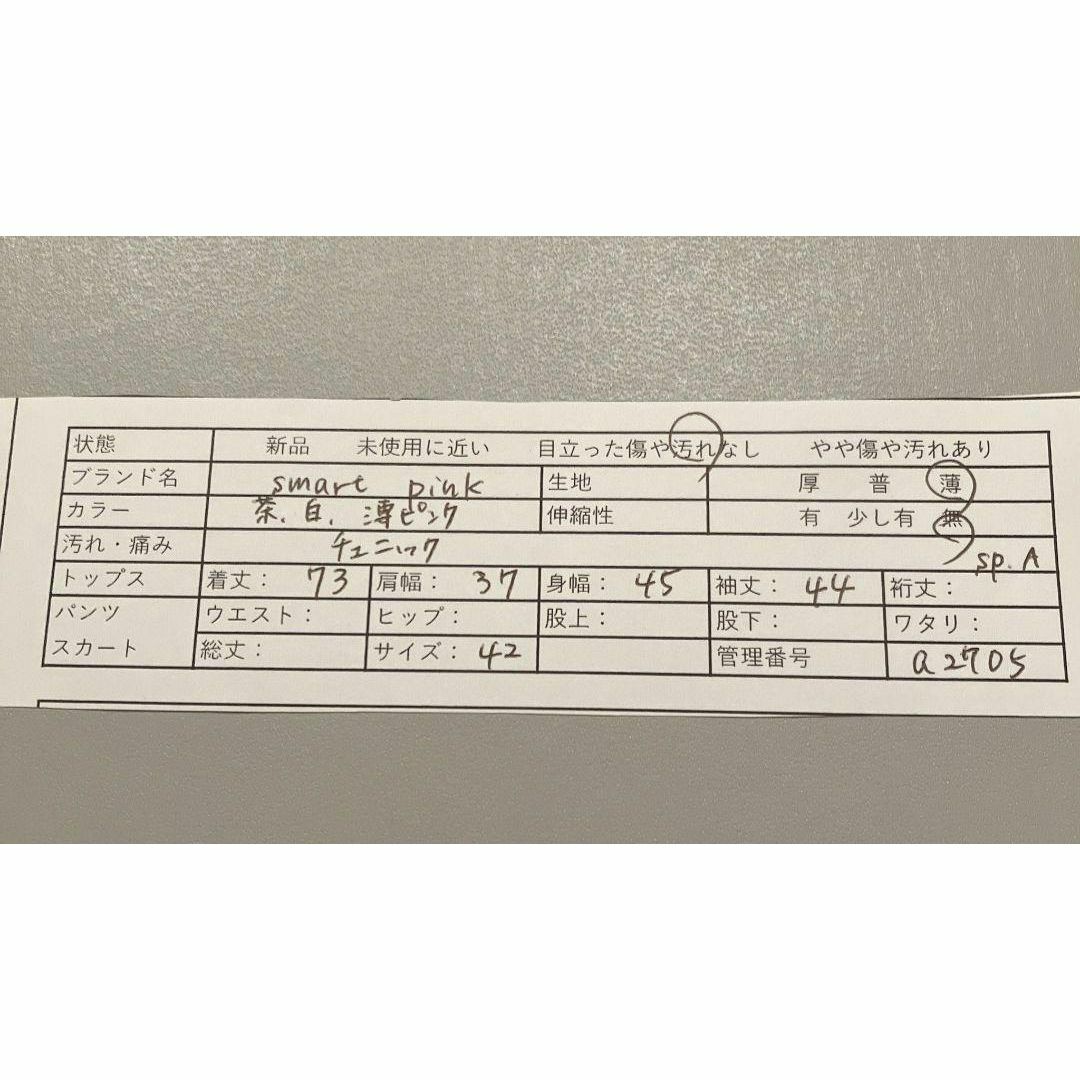 状態 新品 未使用に近い 目立った傷や汚れなし やや傷や汚れあり
ブランド名 smart pink 生地 厚 普 薄
カラー 茶、白、薄ピンク 伸縮性 有 少し有 無
汚れ・痛み チュニック sp.A
トップス 着丈: 73 肩幅: 37 身幅: 45 袖丈: 44 裄丈:
パンツ ウエスト: ヒップ: 股上: 股下: ワタリ:
スカート 総丈: サイズ: 42 管理番号 a2705